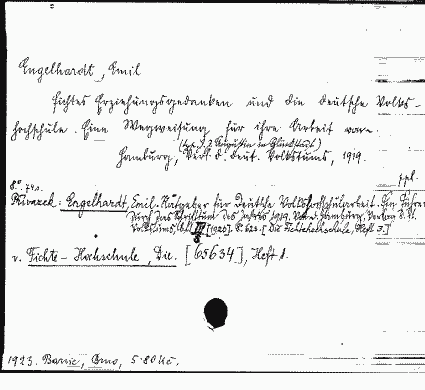 Engelhardt, Emil
Fichtes Erziehungsgedanken und die deutsche Volks-
hochschule. Eine Wegweisung für ihre Arbeit von
(typ. J. J. Augustin in Glückstadt)
Hamburg, Verl. d. deut. Volkstums, 1919.
8° 74 s. ppl.
Engelhardt, Emil. Ratgeber für Deutsche Volkshochschularbeit. Ein Führer
durch das Schrifttum des Jahres 1919. Hamburg, Verlag d. dt.
Volkstums, [1920]. 8°. [Die Fichtehochschule, Heft 3.]
v. Fichte-Hochschule, Die. [65634], Heft 1.
1923. Barvic, Brno, 5·80 Kč.